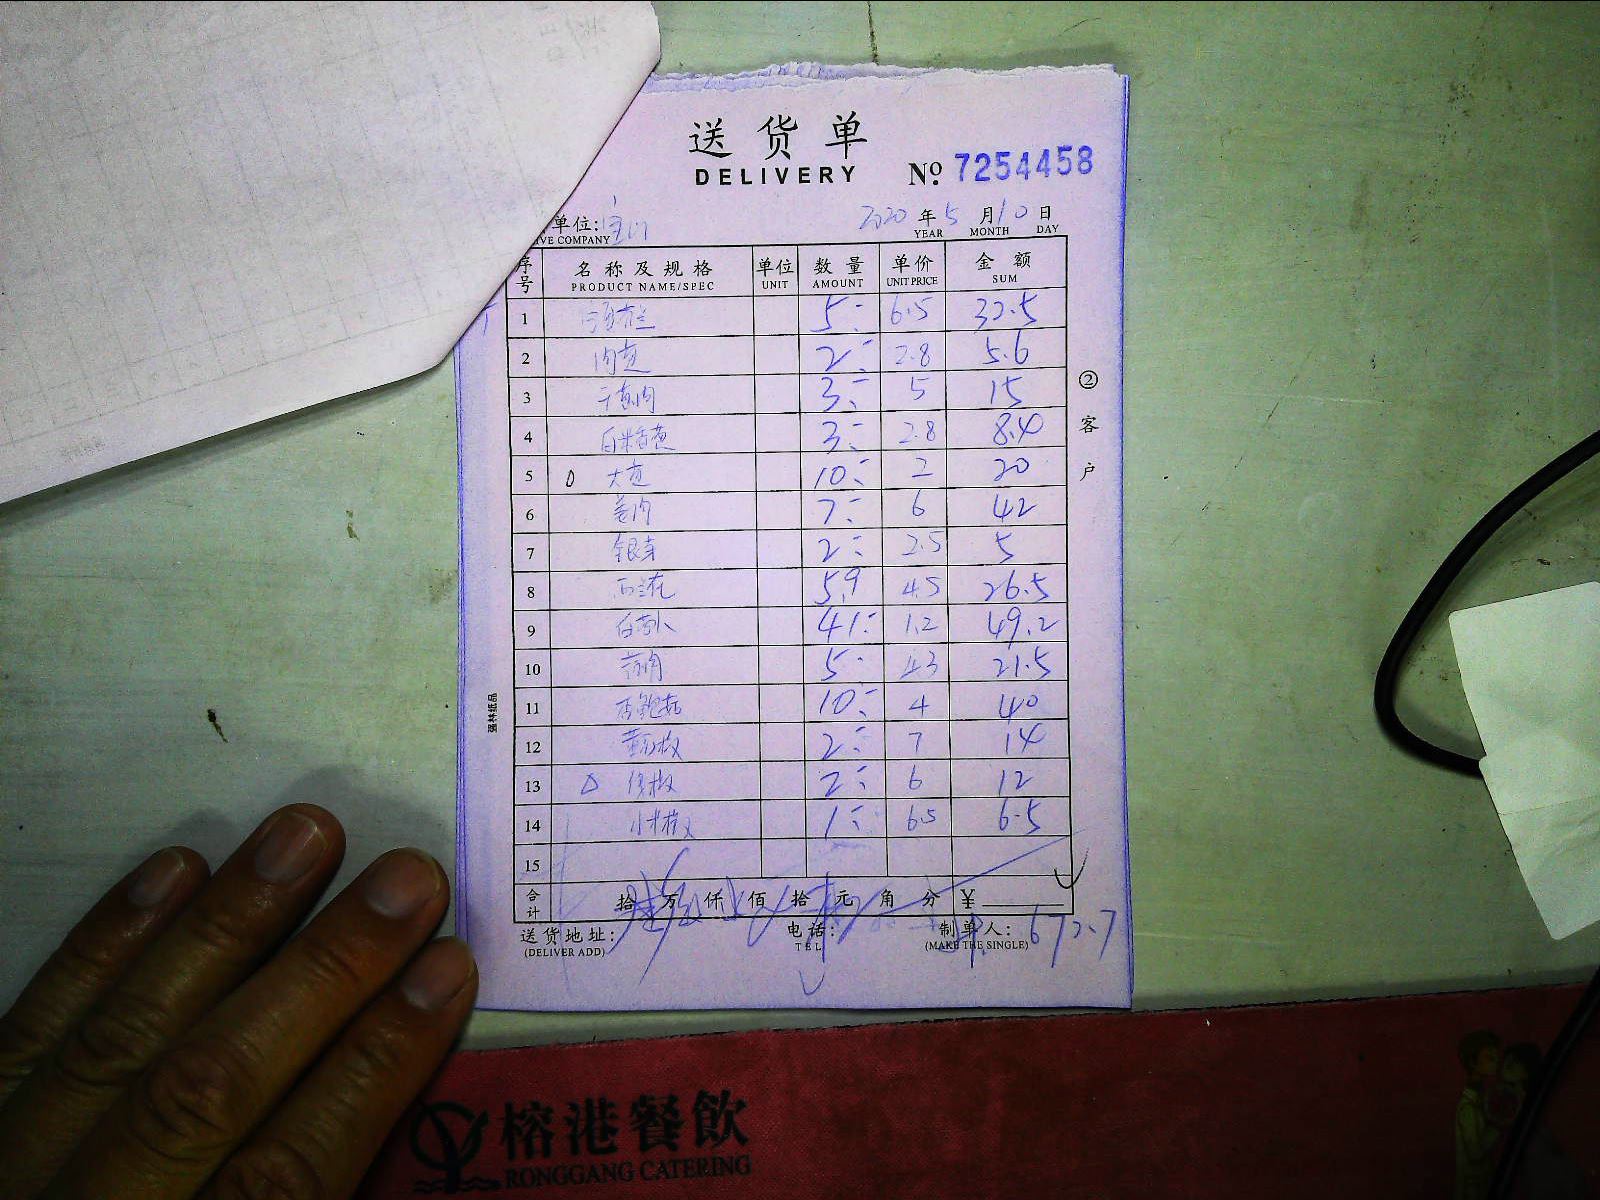 送货单
DELIVERY
№ 7254458
单位:
IVE COMPANY
2020 年 5 月 10 日
YEAR MONTH DAY
序号 名称及规格 单位 数量 单价 金额
PRODUCT NAME/SPEC UNIT AMOUNT UNIT PRICE SUM
1 5 6.5 32.5
2 肉 2 2.8 5.6
3 3 5 15
4 3 2.8 8.4
5 大 10 2 20
6 姜肉 7 6 42
7 银芽 2 2.5 5
8 西兰花 5.9 4.5 26.5
9 白萝卜 41 1.2 49.2
10 5 4.3 21.5
11 杏鲍菇 10 4 40
12 椒 2 7 14
13 椒 2 6 12
14 小米椒 1 6.5 6.5
15
合计 拾 万 仟 佰 拾 元 角 分 ¥
送货地址:
(DELIVER ADD)
电话:
TEL
制单人:
(MAKE THE SINGLE)
672.7
②客户
强林纸品
榕港餐飲
RONGGANG CATERING